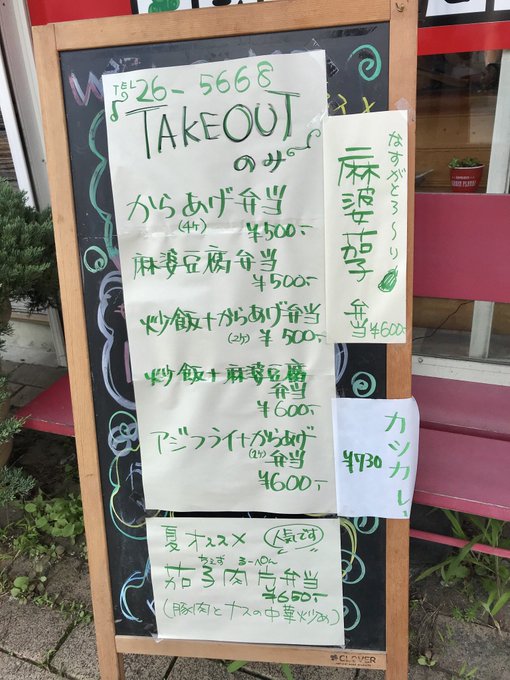 TEL 26-5668
TAKEOUT
のみ
からあげ弁当
(4ケ) ¥500-
麻婆豆腐弁当
¥500-
炒飯+からあげ弁当
(2ケ) ¥500-
炒飯+麻婆豆腐
弁当
¥600-
アジフライ+からあげ
弁当
¥600-
なすがとろ～り
麻婆茄子
弁当¥600-
カツカレー
¥730
夏オススメ
人気です
ちぇず ろーぺん
茄子肉片弁当
¥650-
(豚肉とナスの中華炒め)
CLOVER